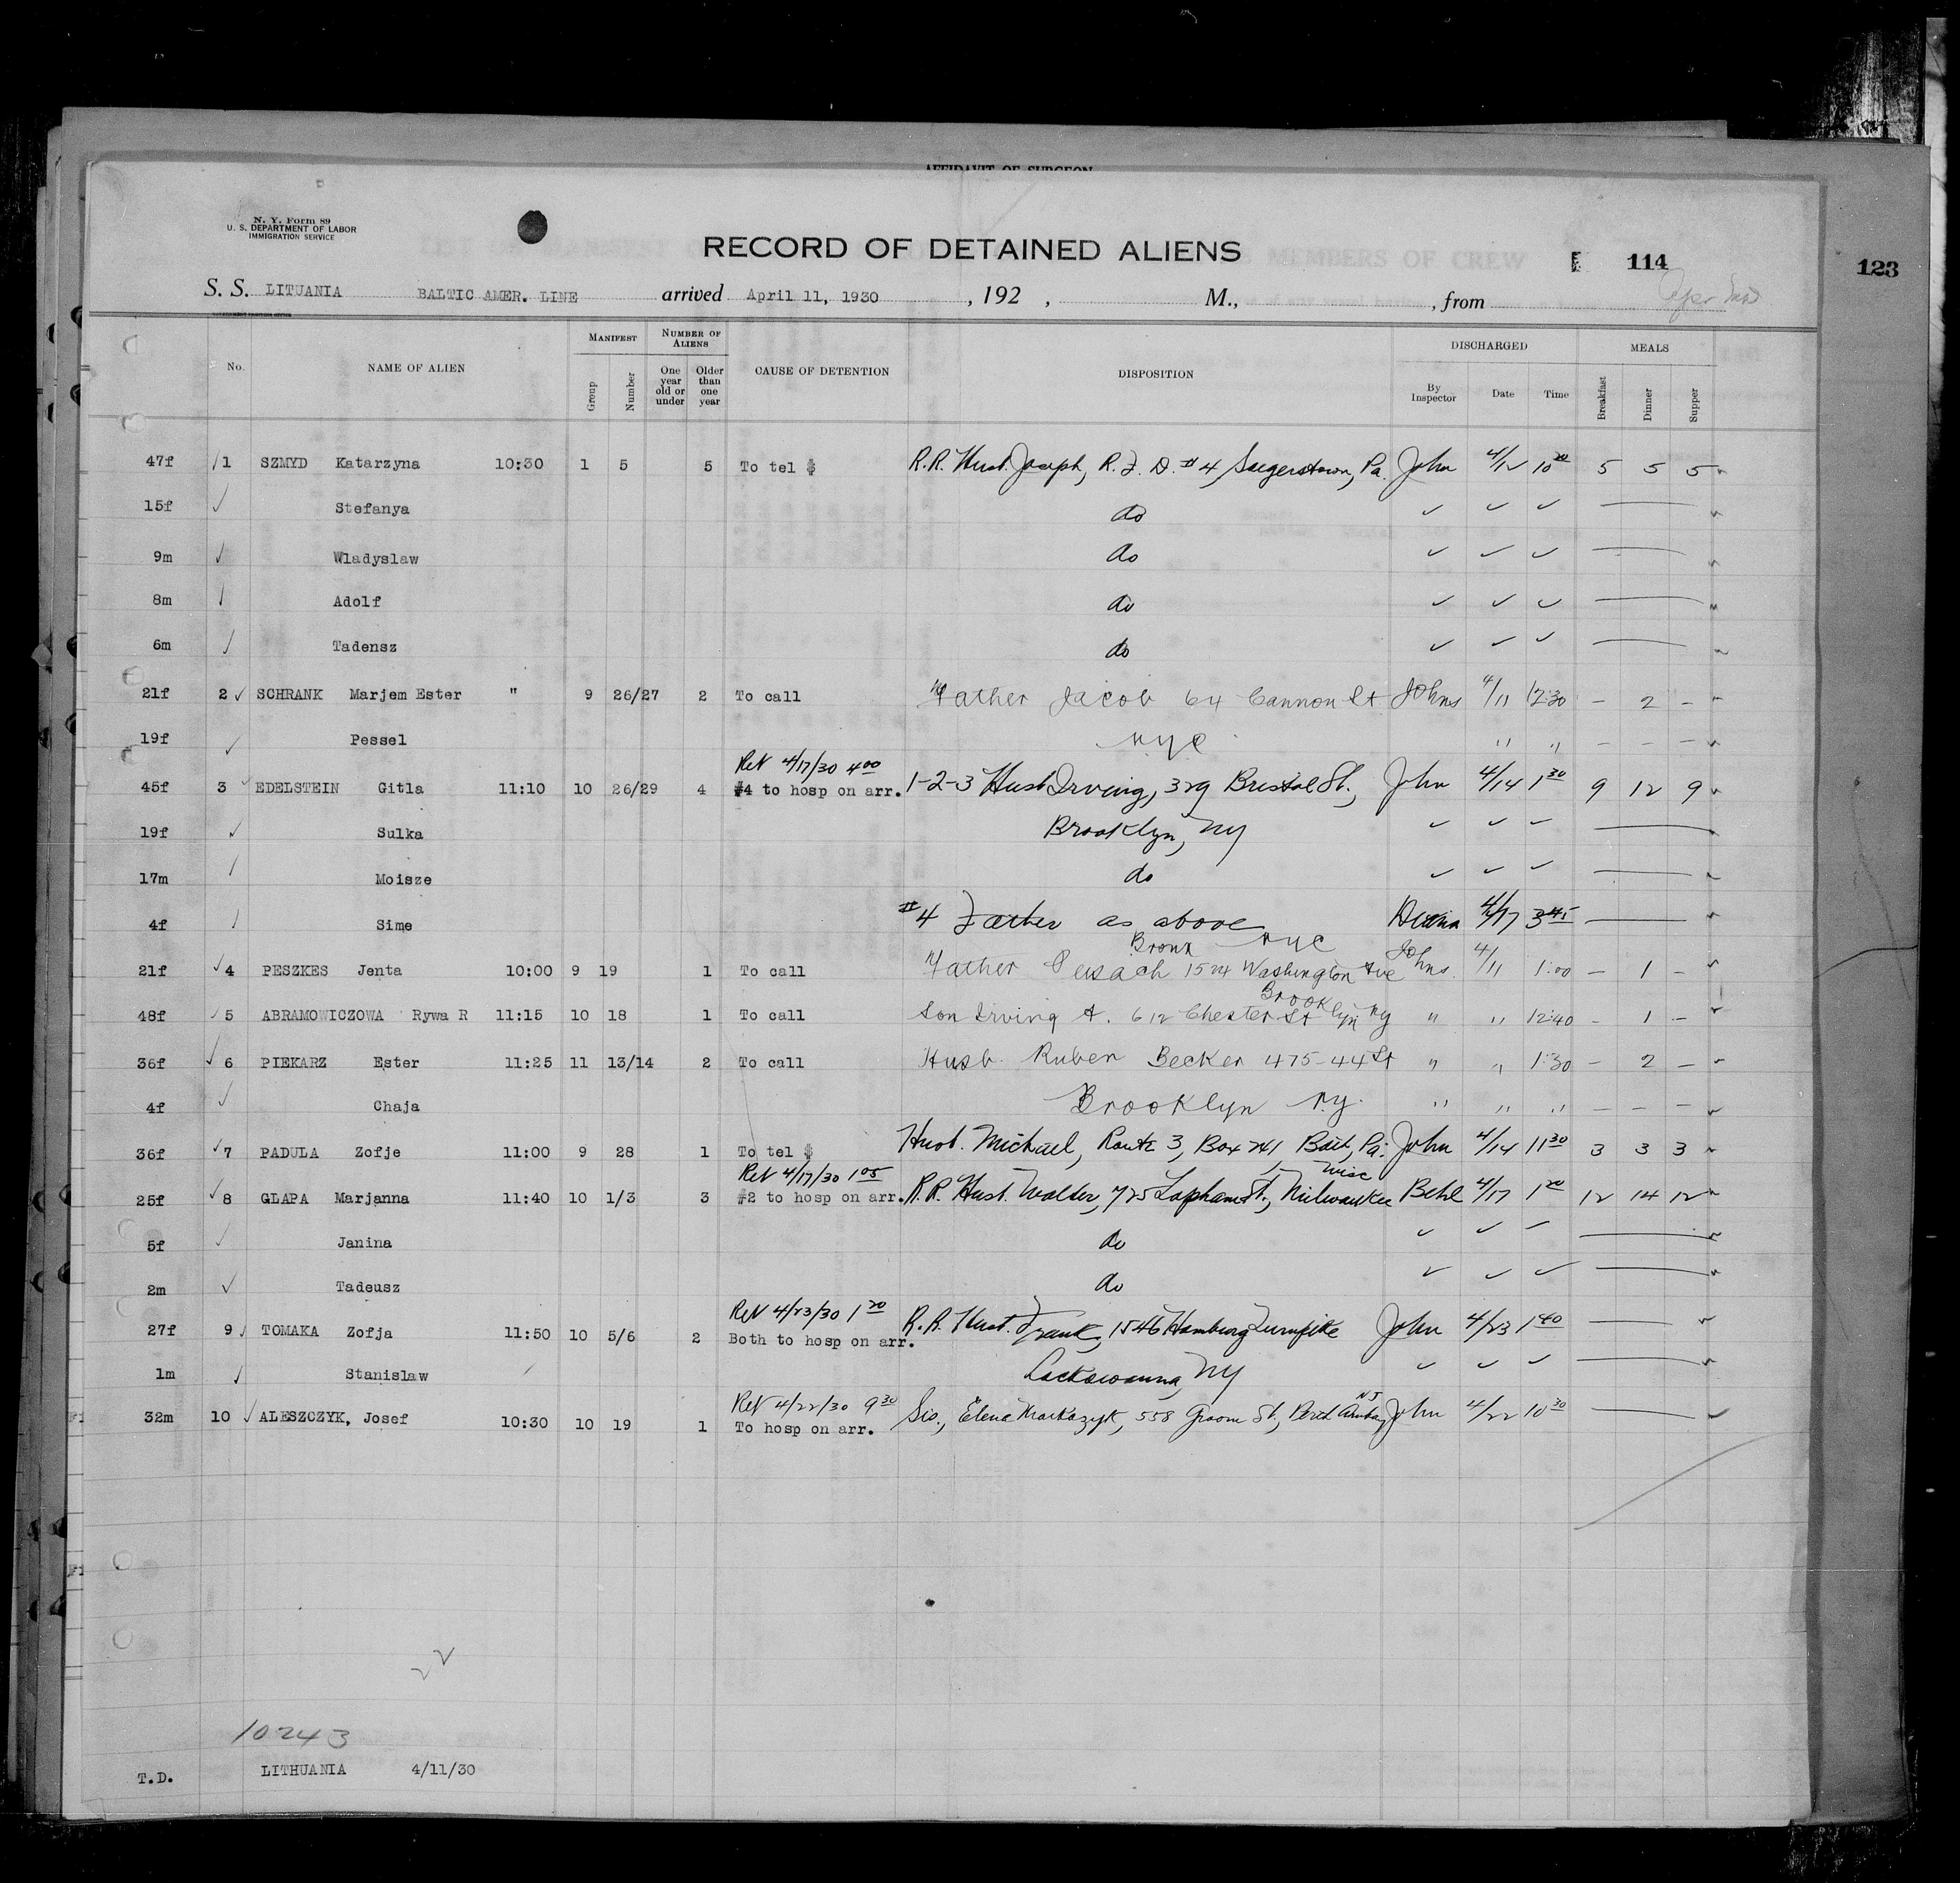 AFFIDAVIT OF SURGEON
N. Y. Form 89
U. S. DEPARTMENT OF LABOR
IMMIGRATION SERVICE
RECORD OF DETAINED ALIENS
114
123
S. S. LITUANIA BALTIC AMER. LINE arrived April 11, 1930 , 192 , M., , from
No. NAME OF ALIEN MANIFEST Group Number NUMBER OF ALIENS One year old or under Older than one year CAUSE OF DETENTION DISPOSITION DISCHARGED By Inspector Date Time MEALS Breakfast Dinner Supper
47f 1 SZMYD Katarzyna 10:30 1 5 5 To tel $ R.R. Husb. Joseph, R.F.D. #4, Saegerstown, Pa. John 4/12 10 20 5 5 5
15f Stefanya do
9m Wladyslaw do
8m Adolf do
6m Tadensz do
21f 2 SCHRANK Marjem Ester " 9 26/27 2 To call Father Jacob 64 Cannon St Johns 4/11 12:30 – 2 –
19f Pessel NYC " " – – –
Ret 4/17/30 4 00
45f 3 EDELSTEIN Gitla 11:10 10 26/29 4 #4 to hosp on arr. 1-2-3 Husb Irving, 329 Bristol St., John 4/14 1 30 9 12 9
19f Sulka Brooklyn, NY
17m Moisze do
4f Sime #4 Father as above 4/17 3 45
Bronx NYC
21f 4 PESZKES Jenta 10:00 9 19 1 To call Father Peisach 1524 Washington Ave Johns. 4/11 1:00 – 1 –
48f 5 ABRAMOWICZOWA Rywa R 11:15 10 18 1 To call Son Irving A. 612 Chester St Brooklyn NY " " 12:40 – 1 –
36f 6 PIEKARZ Ester 11:25 11 13/14 2 To call Husb. Ruben Becker 475-44 St " " 1:30 – 2 –
4f Chaja Brooklyn N.Y. " " " – – –
36f 7 PADULA Zofje 11:00 9 28 1 To tel $ Husb. Michael, Route 3, Box 241, Pa. John 4/14 11 30 3 3 3
Ret 4/17/30 1 05
25f 8 GLAPA Marjanna 11:40 10 1/3 3 #2 to hosp on arr. R.R. Husb. Walter, 725 Lapham St., Milwaukee Wisc Behl 4/17 1 20 12 14 12
5f Janina do
2m Tadeusz do
Ret 4/23/30 1 20
27f 9 TOMAKA Zofja 11:50 10 5/6 2 Both to hosp on arr. R.R. Husb. Frank, 1546 Hamburg Turnpike John 4/23 1 40
1m Stanislaw Lackawanna, NY
Ret 4/22/30 9 30
32m 10 ALESZCZYK, Josef 10:30 10 19 1 To hosp on arr. Sis., Elena 558 Groom St., Perth Amboy NJ John 4/22 10 30
10243
T.D. LITHUANIA 4/11/30